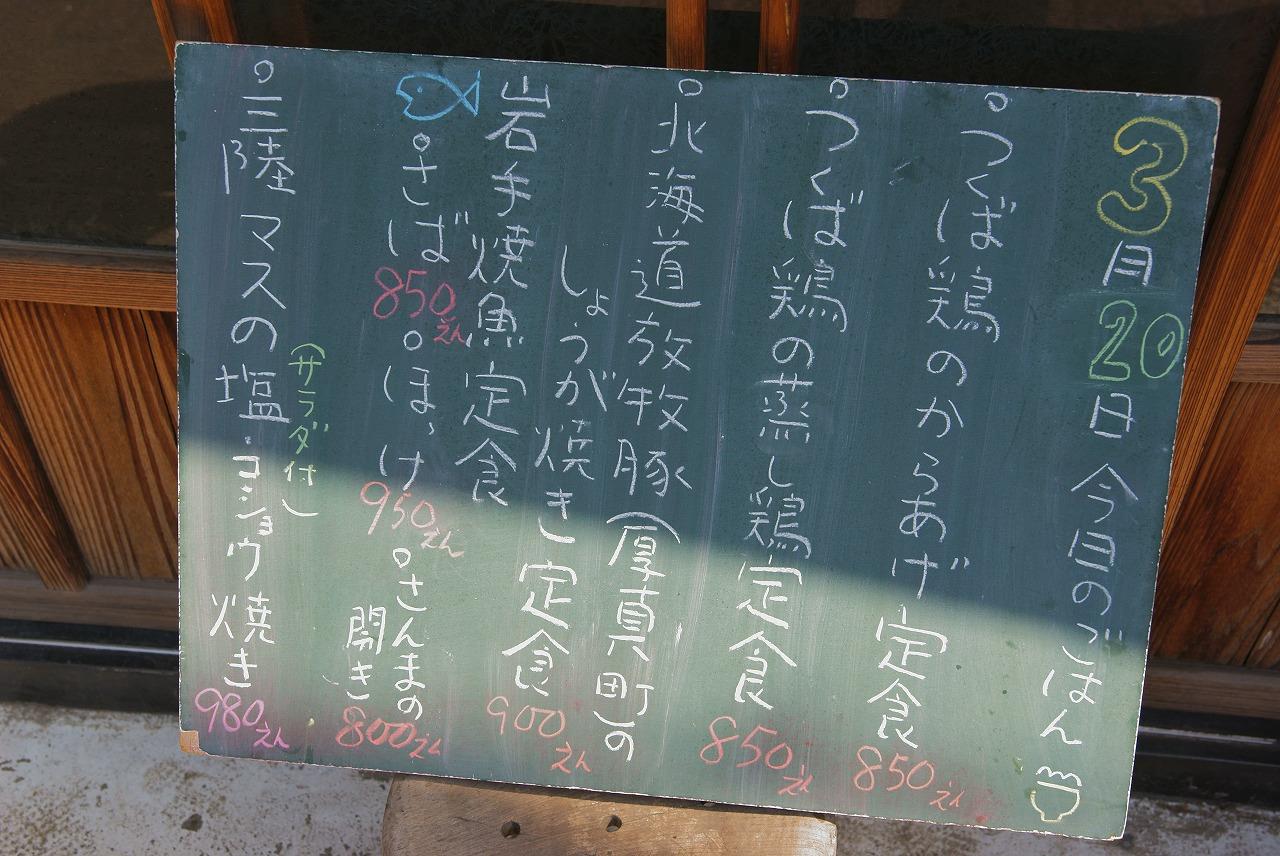 3月20日 今日のごはん
つくば鶏のからあげ定食 850えん
つくば鶏の蒸し鶏定食 850えん
北海道放牧豚(厚真町)の
しょうが焼き定食 900えん
岩手焼魚定食
さば 850えん ほっけ 950えん さんまの
開き 800えん
(サラダ付)
三陸マスの塩・コショウ焼き 980えん